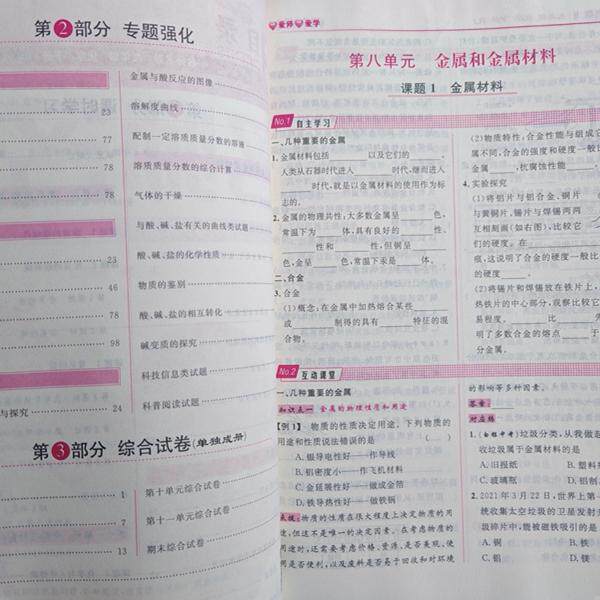 第2部分 专题强化
金属与酸反应的图像
溶解度曲线
23
配制一定溶质质量分数的溶液
77
溶质质量分数的综合计算
78
78
气体的干燥
与酸、碱、盐有关的曲线类试题
酸、碱、盐的化学性质
23
物质的鉴别
46
酸、碱、盐的相互转化
78
碱变质的探究
98
科技信息类试题
与探究 24
科普阅读试题
第3部分 综合试卷(单独成册)
1
第十单元综合试卷
7
第十一单元综合试卷
13
期末综合试卷
爱师爱学
第八单元 金属和金属材料
课题1 金属材料
No.1 自主学习
一、几种重要的金属
1. 金属材料包括 以及它们的 。
人类从石器时代进入 时代,继而进入
时代,就是以金属材料的使用作为标
志的。
2. 金属的物理共性:大多数金属呈 色,
常温下为 体,具有良好的 性、
性和 性,但铜呈
色,金呈 色,常温下汞是 体。
二、合金
3. 合金
(1)概念:在金属中加热熔合某些
或 制得的具有 特征的混
合物。
(2)物质特性:合金性能与组成它
属不同,合金的强度和硬度一般比
金属 ,抗腐蚀性能
4. 实验探究
(1)将铝片与铝合金、铜片
与黄铜片、锡片与焊锡两两
互相刻画(如右图),比较它
们的硬度。在
痕,这说明了合金的硬度一般比
的硬度
(2)将锡片和焊锡放在铁片上,
热铁片的中心部分,观察比较它
易程度, 比 先
明了多数合金的熔点 于
分金属。
No.2 互动课堂
一、几种重要的金属
知识点一 金属的物理性质和用途
【例1】 物质的性质决定用途,下列物质的
用途和性质说法错误的 ( )
A. 银导电性好——作导线
B. 铝密度小——作飞机材料
C. 金延展性好——做成金箔
D. 铁导热性好——做铁锅
点拨:物质的性质在很大程度上决定物质的用
途,但这不是唯一的决定因素。在考虑物质的
用途时,还需要考虑价格、资源、是否美观、使
用是否便利,以及废料是否易于回收和对环境
的影响等多种因素。
答案:
对应练
1. (白银中考)垃圾分类,从我做起
收垃圾属于金属材料的是
A. 旧报纸 B. 塑料
C. 玻璃瓶 D. 铝制
2. 2021年3月22日,世界上第一
统收集太空垃圾的卫星发射
圾碎片中,能被磁铁吸引的是
A. 铜 B. 铁
C. 铝 D. 镁